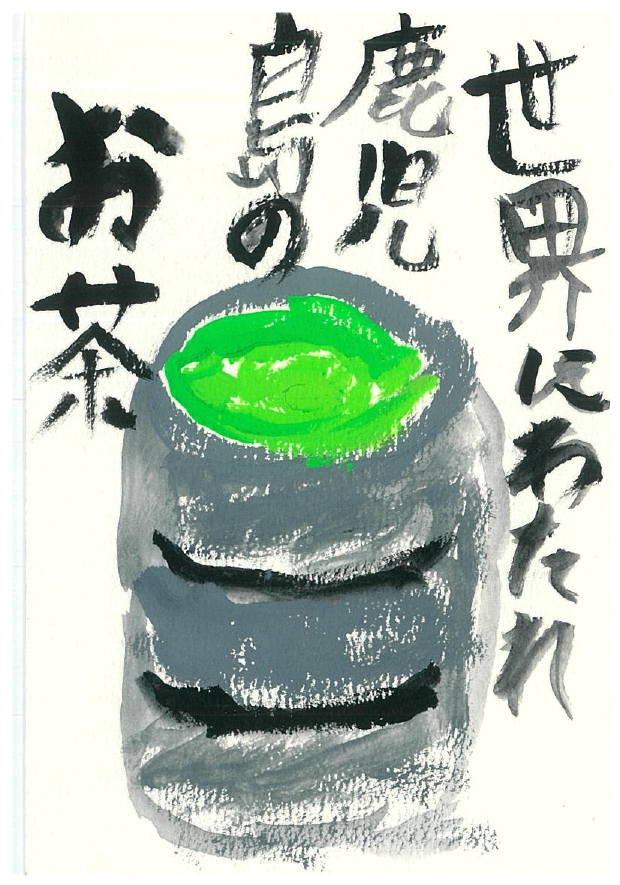 世界にわたれ
鹿児
島の
お茶